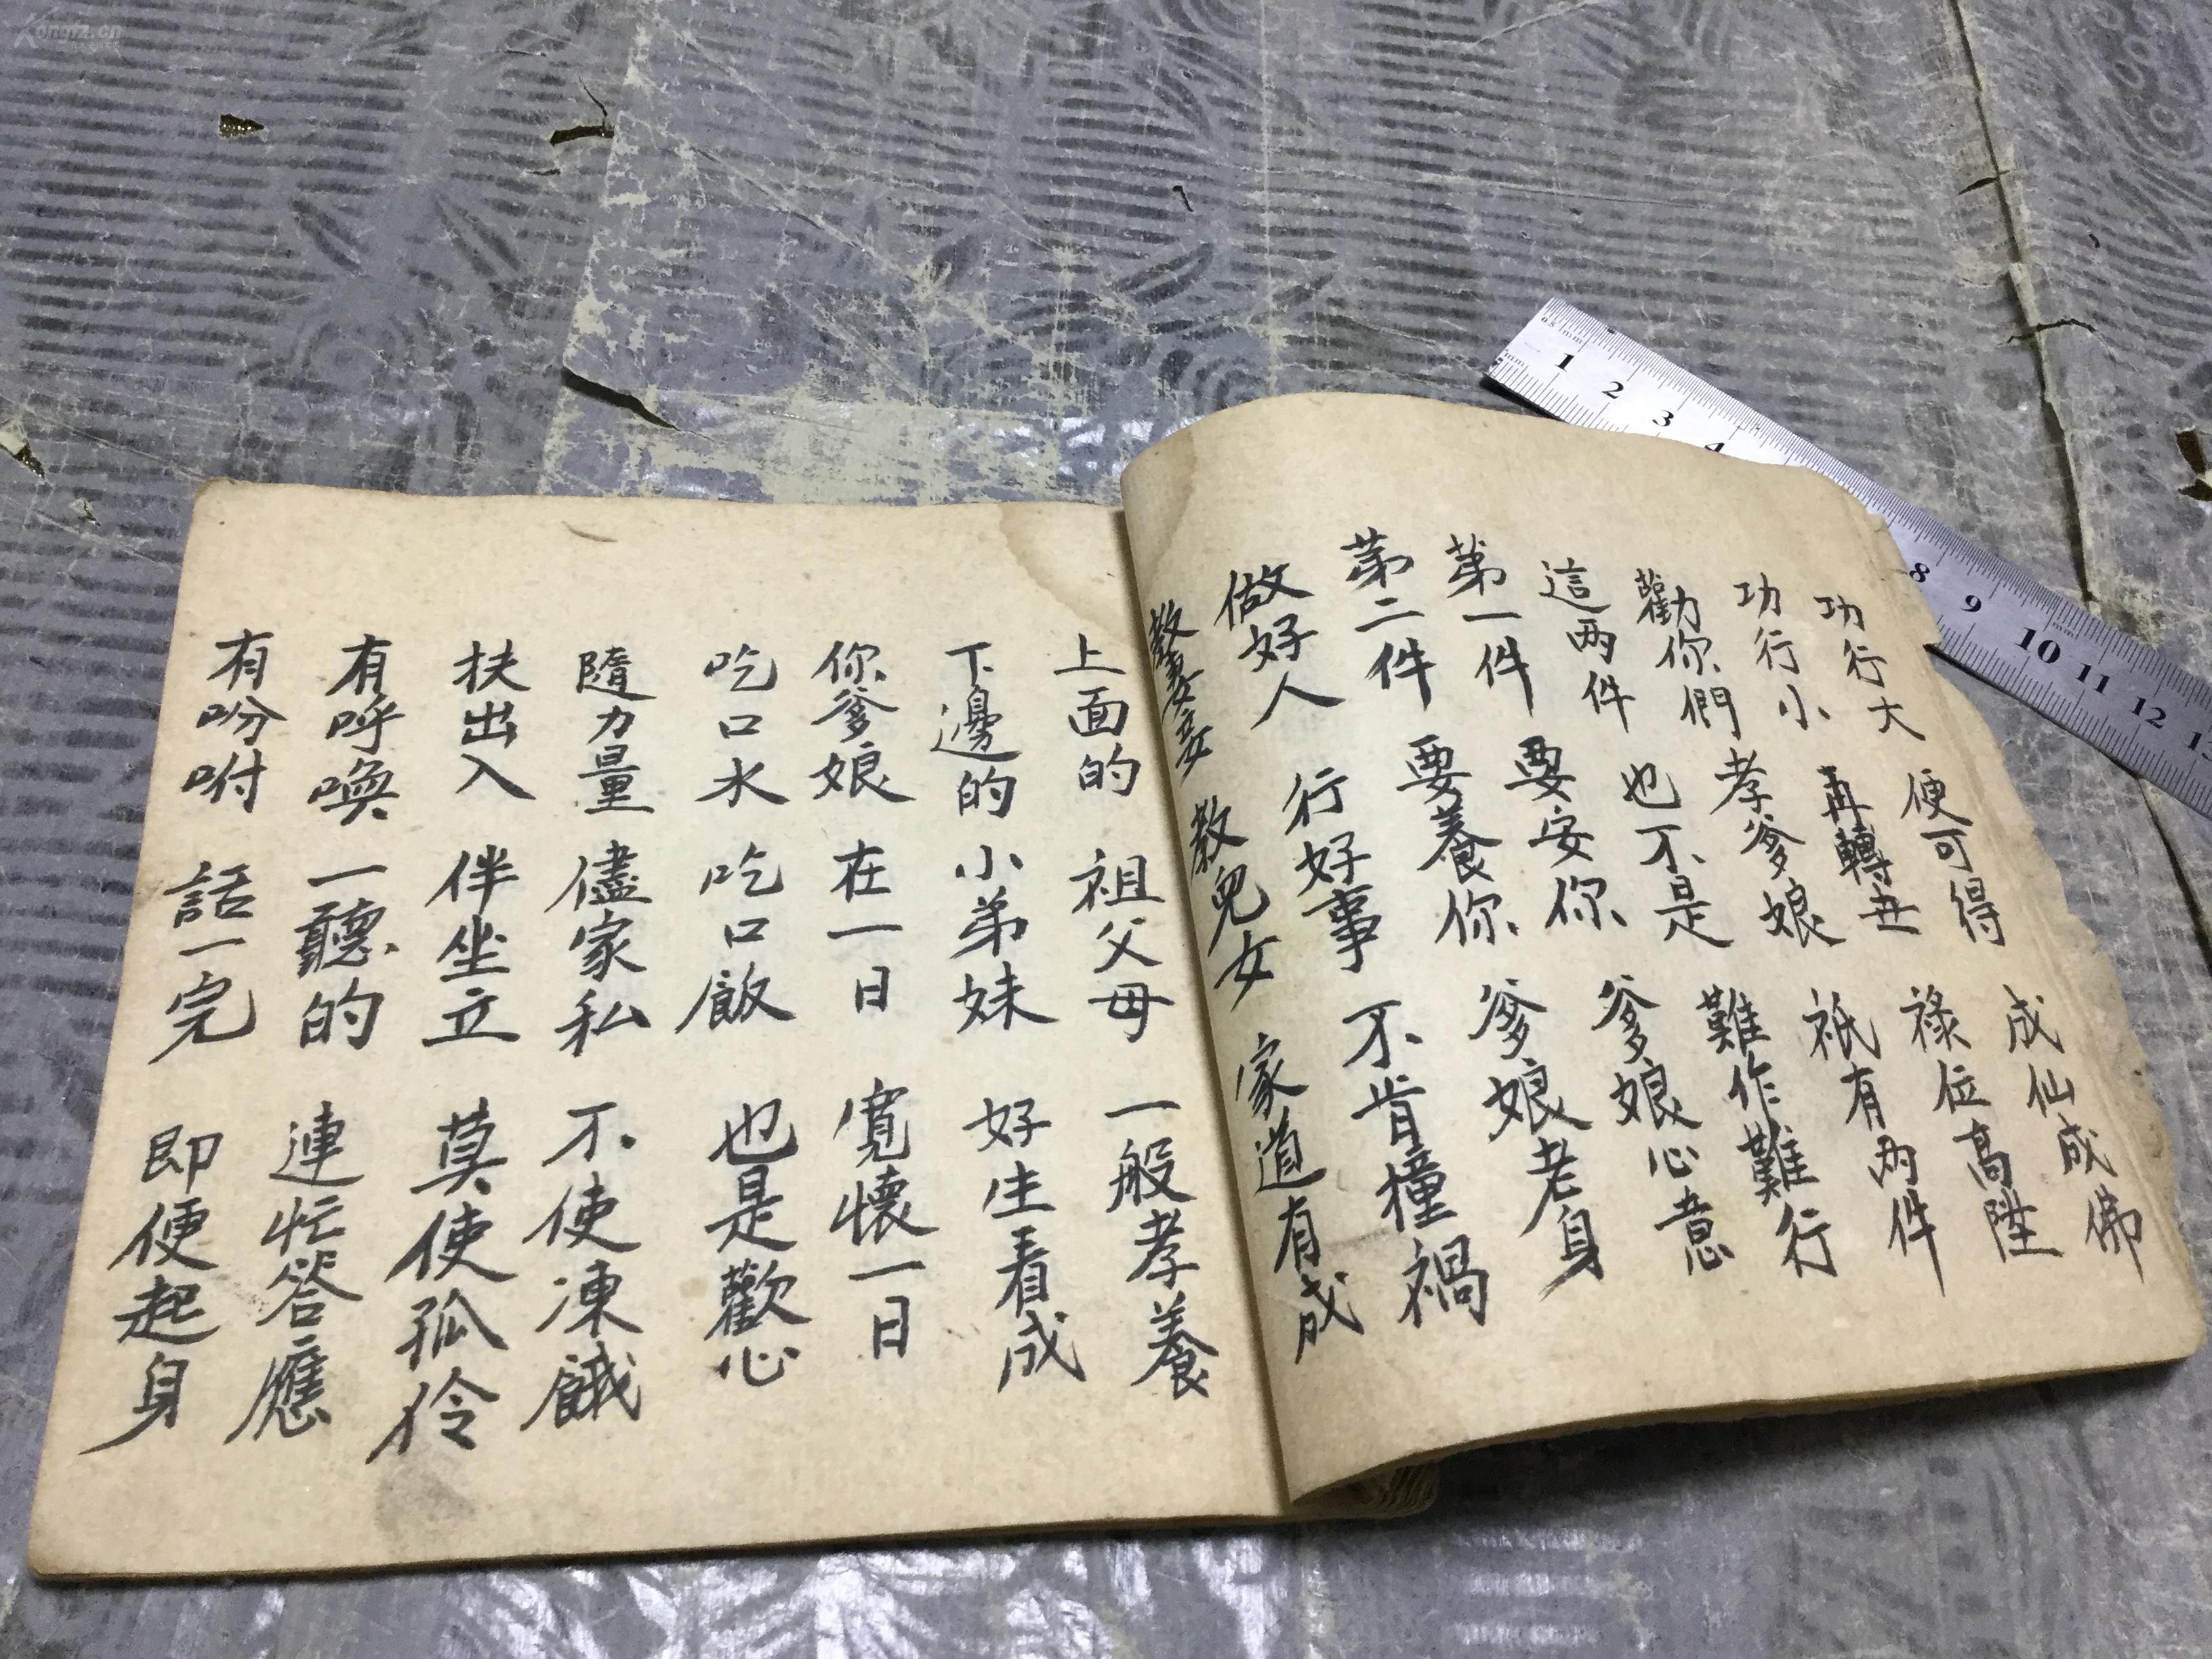 功行大 便可得 成仙成佛
功行小 再轉世 祿位高陞
勸你們 孝爹娘 衹有两件
這两件 也不是 難作難行
第一件 要安你 爹娘心意
第二件 要養你 爹娘老身
做好人 行好事 不肯撞禍
教妻妾 教兒女 家道有成
上面的 祖父母 一般孝養
下邊的 小弟妹 好生看成
你爹娘 在一日 寬懷一日
吃口水 吃口飯 也是歡心
隨力量 儘家私 不使凍餓
扶出入 伴坐立 莫使孤伶
有呼喚 一聽的 連忙答應
有吩咐 話一完 即便起身
Kongfz.cn
0.5 mm
1 2 3 4 8 9 10 11 12 13
mm